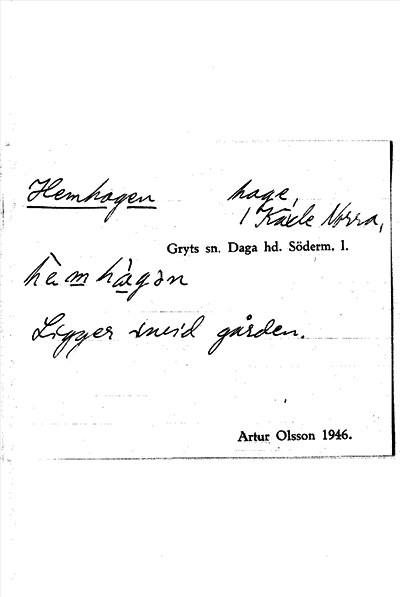 Hemhagen hage,
1 Karle Norra,
Gryts sn. Daga hd. Söderm. l.
hèmhàgən
Ligger invid gården.
Artur Olsson 1946.